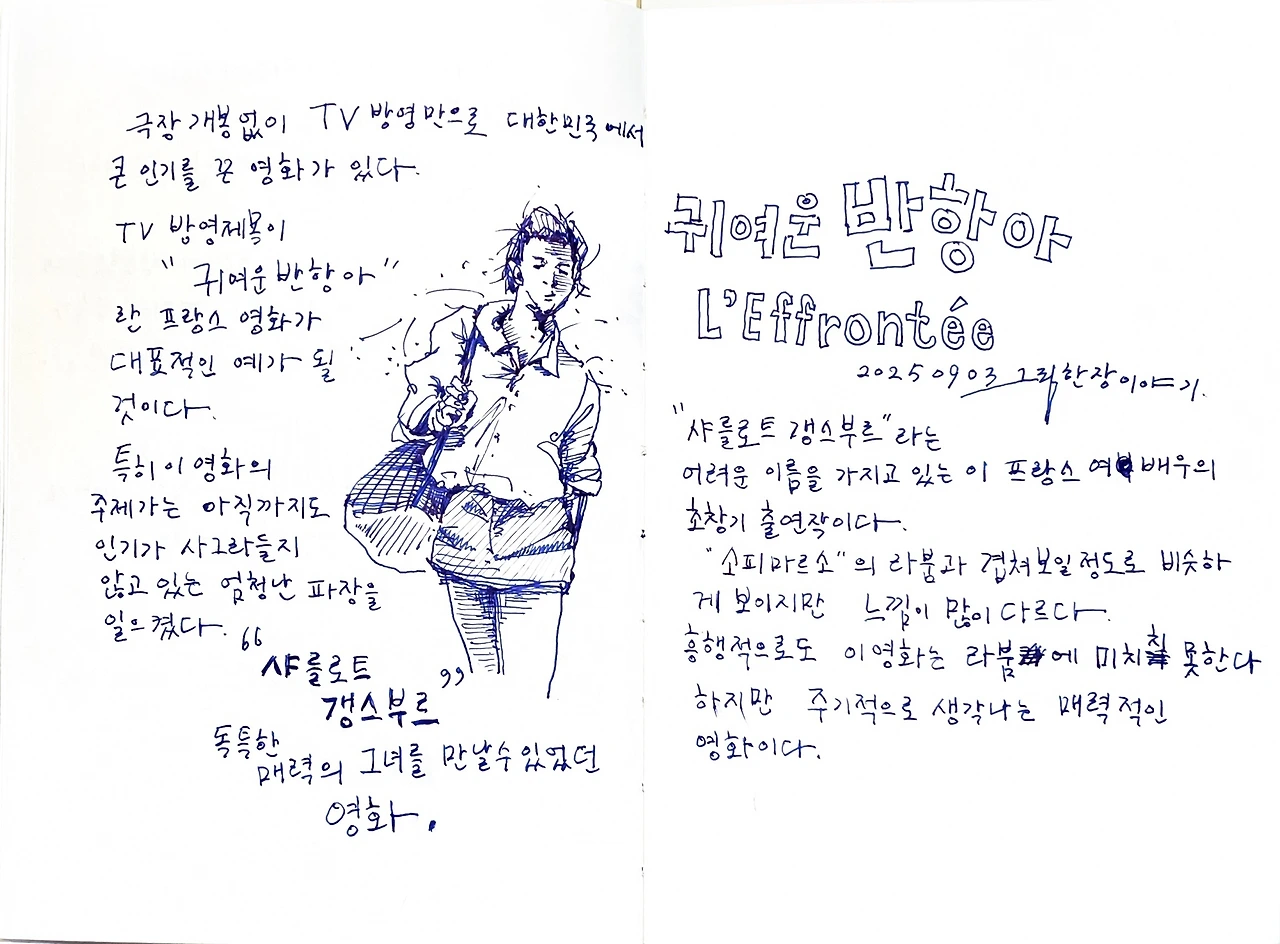 극장 개봉없이 TV 방영만으로 대한민국에서
큰 인기를 끈 영화가 있다.
TV 방영제목이
"귀여운반항아"
란 프랑스 영화가
대표적인 예가 될
것이다.
특히 이 영화의
주제가는 아직까지도
인기가 사그라들지
않고 있는 엄청난 파장을
일으켰다.
"샤를로트
갱스부르"
독특한
매력의 그녀를 만날수있었던
영화.
귀여운 반항아
L'Effrontée
20250903 그림한장이야기.
"샤를로트 갱스부르"라는
어려운 이름을 가지고 있는 이 프랑스 여배우의
초창기 출연작이다.
"소피마르소"의 라붐과 겹쳐보일정도로 비슷하
게 보이지만 느낌이 많이 다르다.
흥행적으로도 이영화는 라붐에 미치질 못한다
하지만 주기적으로 생각나는 매력적인
영화이다.